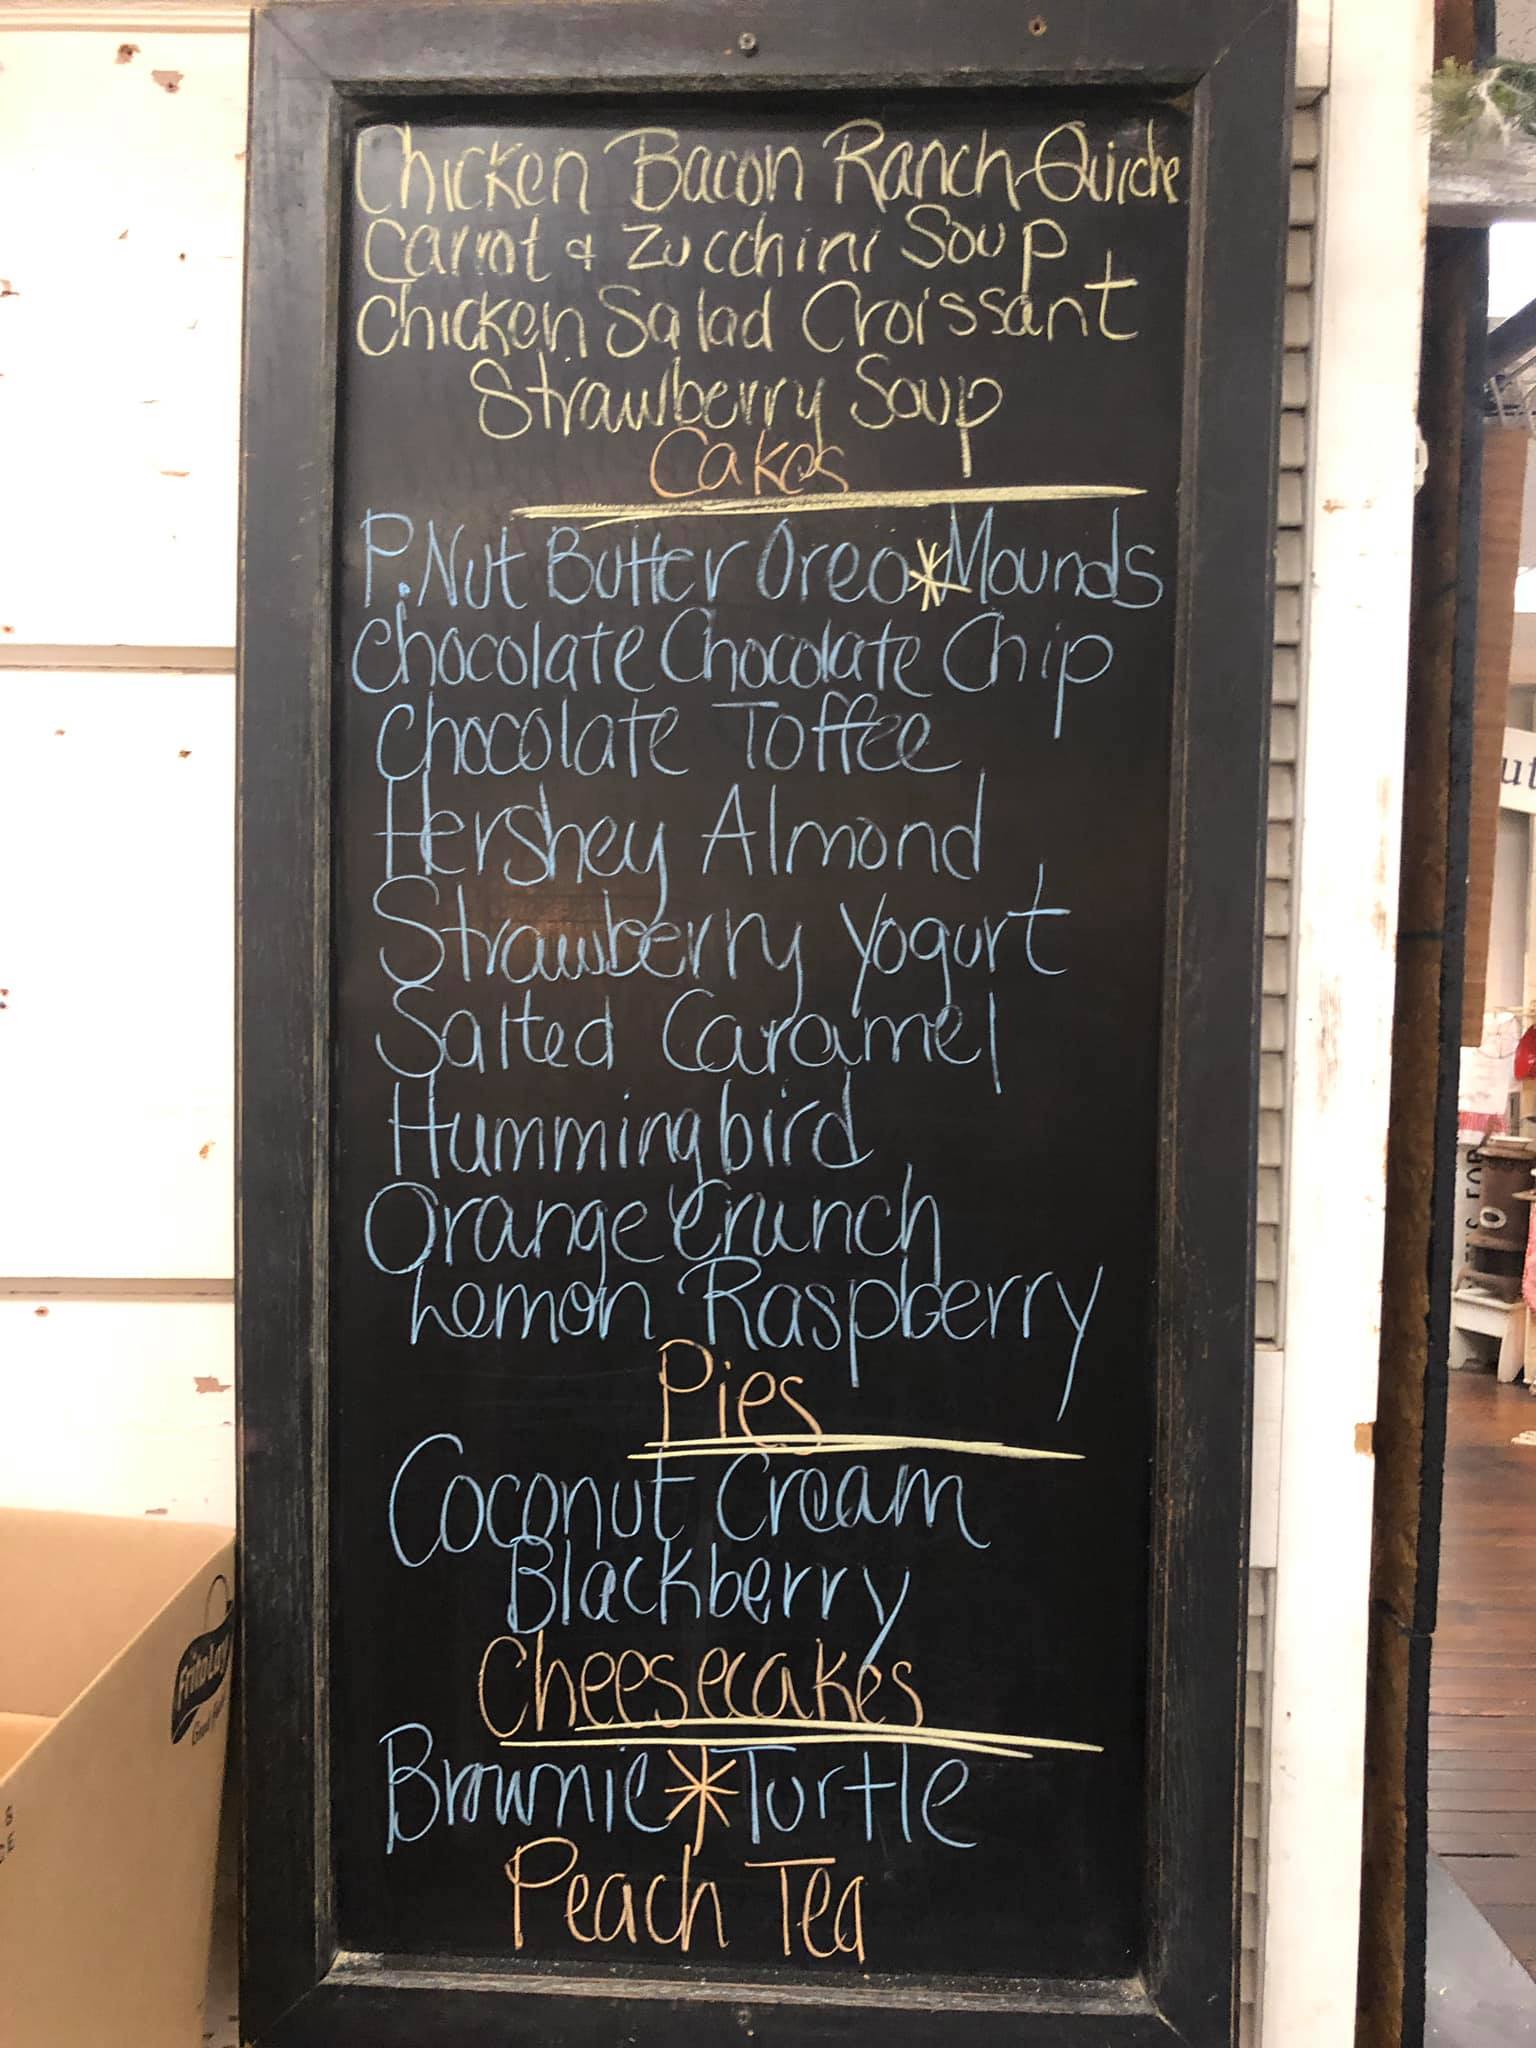 Chicken Bacon Ranch Quiche
Carrot & Zucchini Soup
Chicken Salad Croissant
Strawberry Soup
Cakes
P.Nut Butter Oreo*Mounds
Chocolate Chocolate Chip
Chocolate Toffee
Hershey Almond
Strawberry Yogurt
Salted Caramel
Hummingbird
Orange Crunch
Lemon Raspberry
Pies
Coconut Cream
Blackberry
Cheesecakes
Brownie*Turtle
Peach Tea
FritoLay